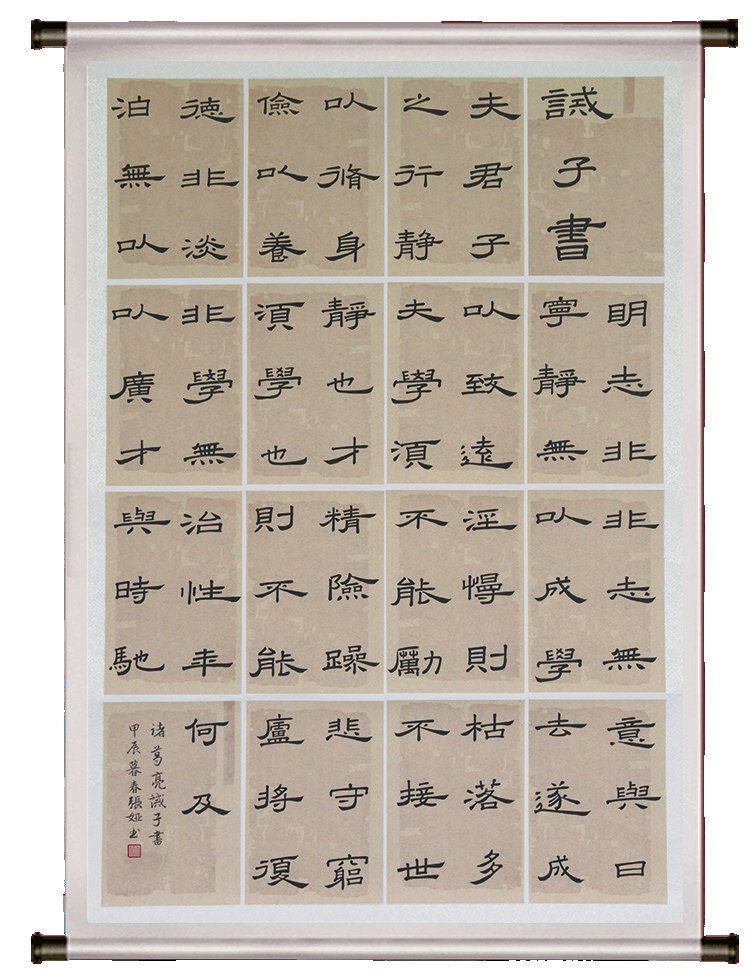 誡子書
夫君子
之行静
以脩身
儉以養
德非淡
泊無以
明志非
寧靜無
以致遠
夫學須
靜也才
須學也
非學無
以廣才
非志無
以成學
淫慢則
不能勵
精險躁
則不能
治性年
與時馳
意與日
去遂成
枯落多
不接世
悲守窮
廬將復
何及
诸葛亮誡子書
甲辰暮春張婭书